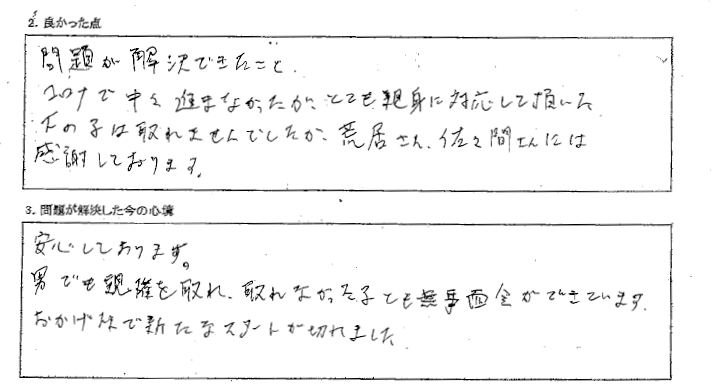 2. 良かった点
問題が解決できたこと.
コロナで中々進まなかったが、とても親身に対応して頂いた
下の子は取れませんでしたが、荒居さん、佐々間さんには
感謝しております。
3. 問題が解決した今の心境
安心しております。
男でも親権を取れ、取れなかった子とも無事面会ができています.
おかげ様で新たなスタートが切れました